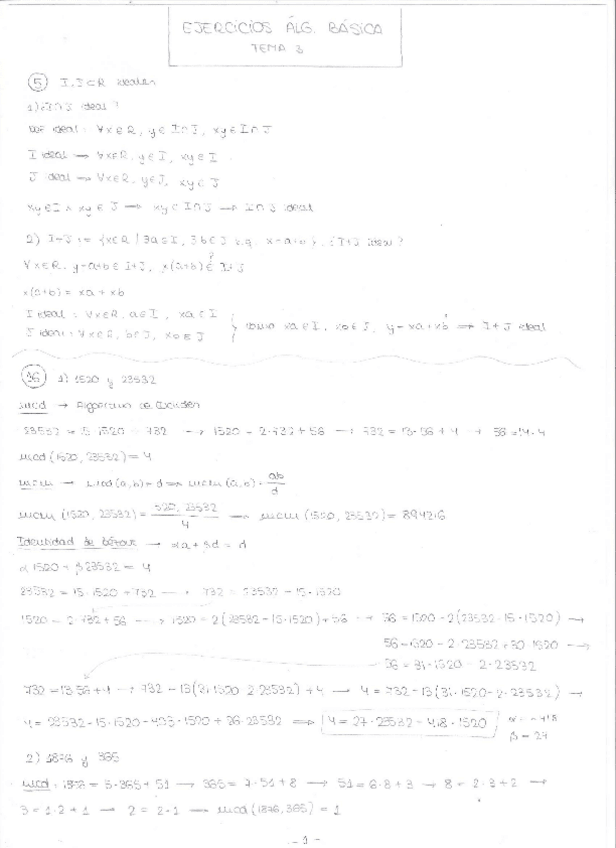 EJERCICIOS ÁLG. BÁSICA
TEMA 3
⑤ I, J ⊂ R ideales
1) ¿I∩J ideal?
DEF ideal: ∀x∈R, y∈I∩J, xy∈I∩J
I ideal → ∀x∈R, y∈I, xy∈I
J ideal → ∀x∈R, y∈J, xy∈J
xy∈I ∧ xy∈J → xy∈I∩J → I∩J ideal
2) I+J := {x∈R / ∃a∈I, ∃b∈J t.q. x=a+b}. ¿I+J ideal?
∀x∈R, y=a+b∈I+J, x(a+b) ∈? I+J
x(a+b) = xa + xb
I ideal: ∀x∈R, a∈I, xa∈I
J ideal: ∀x∈R, b∈J, xb∈J } como xa∈I, xb∈J, y=xa+xb ⇒ I+J ideal
1) 1520 y 23532
mcd → Algoritmo de Euclides
23532 = 15·1520 + 732 → 1520 = 2·732 + 56 → 732 = 13·56 + 4 → 56 = 14·4
mcd(1520, 23532) = 4
mcm → mcd(a,b) = d ⇒ mcm(a,b) = ab/d
mcm(1520, 23532) = 1520·23532/4 → mcm(1520, 23532) = 894216
Identidad de Bézout → αa + βd = d
α1520 + β23532 = 4
23532 = 15·1520 + 732 → 732 = 23532 − 15·1520
1520 = 2·732 + 56 → 1520 = 2(23532 − 15·1520) + 56 → 56 = 1520 − 2(23532 − 15·1520) →
56 = 1520 − 2·23532 + 30·1520 →
56 = 31·1520 − 2·23532
732 = 13·56 + 4 → 732 = 13(31·1520 − 2·23532) + 4 → 4 = 732 − 13(31·1520 − 2·23532) →
4 = 23532 − 15·1520 − 403·1520 + 26·23532 ⇒ 4 = 27·23532 − 418·1520 α = −418
β = 27
2) 1876 y 365
mcd: 1876 = 5·365 + 51 → 365 = 7·51 + 8 → 51 = 6·8 + 3 → 8 = 2·3 + 2 →
3 = 1·2 + 1 → 2 = 2·1 → mcd(1876, 365) = 1
- 1 -